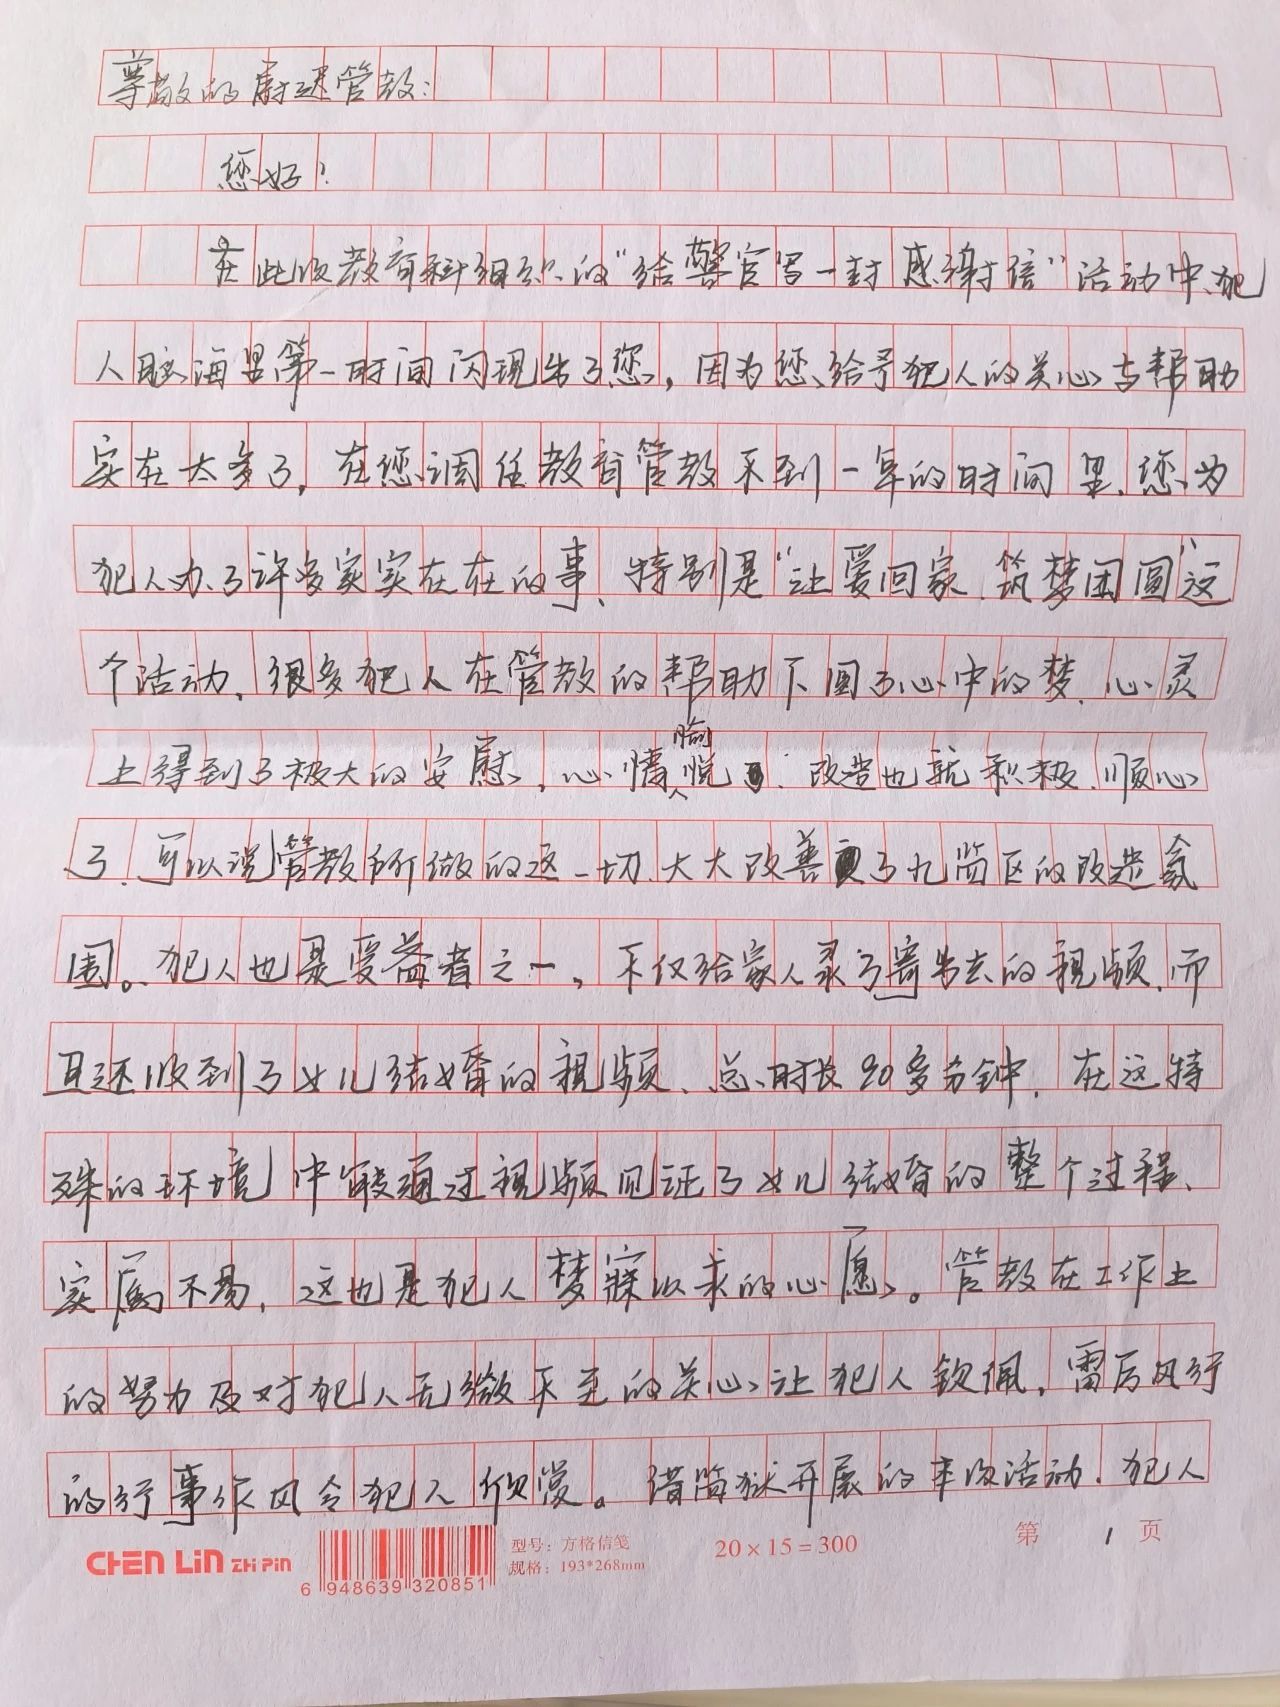 尊敬的尉迟管教：
您好！
在此次教育科组织的“给警官写一封感谢信”活动中、犯
人脑海里第一时间闪现出了您，因为您给予犯人的关心与帮助
实在太多了，在您调任教育管教不到一年的时间里、您为
犯人办了许多实实在在的事、特别是“让爱回家、筑梦团圆”这
个活动、很多犯人在管教的帮助下圆了心中的梦、心灵
上得到了极大的安慰，心情愉悦、改造也就积极、顺心
了、可以说管教所做的这一切、大大改善了九监区的改造氛
围。犯人也是受益者之一，不仅给家人录了寄出去的视频、而
且还收到了女儿结婚的视频、总时长20多分钟、在这特
殊的环境中能通过视频见证了女儿结婚的整个过程、
实属不易，这也是犯人梦寐以求的心愿。管教在工作上
的努力及对犯人无微不至的关心让犯人钦佩，雷厉风行
的行事作风令犯人欣赏。借监狱开展的本次活动、犯人
CHEN LIN ZHI PIN
6 948639 320851
型号：方格信笺
规格：193*268mm
20×15=300
第 1 页